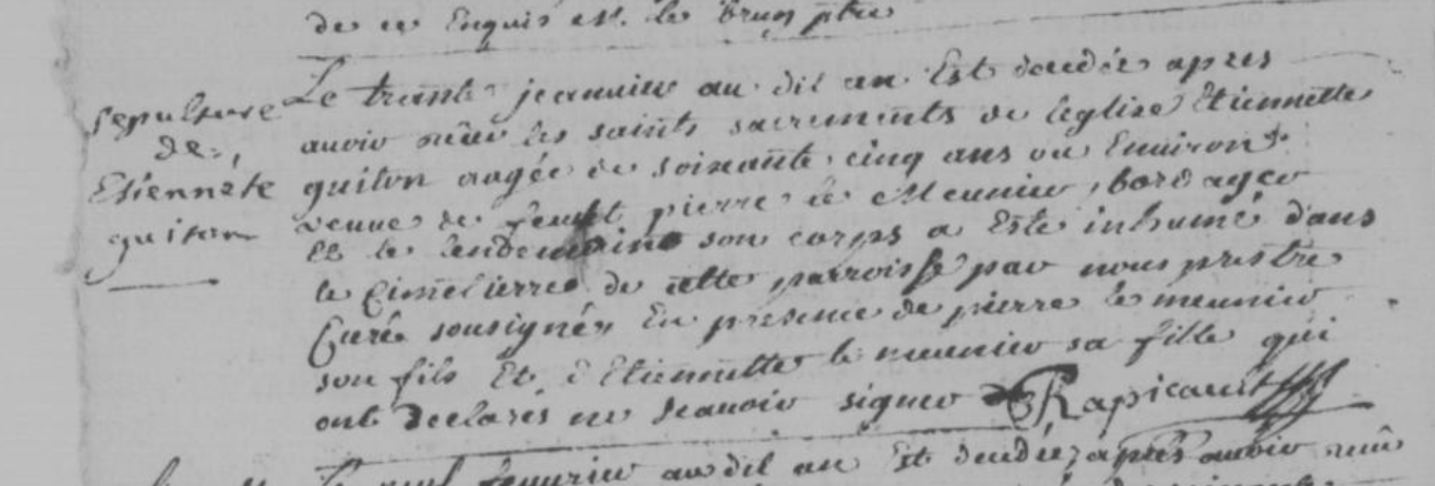 de ce Enquis est. le brun ptre
Sepulture
de
Etiennete
guiton
Le trante jeanuier au dit an Est decedée apres
auoir reçeu les saints sacrements de leglise Etiennette
guiton aagée de soixante cinq ans ou Enuiron
veuue de feu pierre le Meunier, bordager
Et le lendemain son corps a Este inhumé dans
le Cimetierre de cette parroisse par nous prestre
Curé sousigné, En presence de pierre le meunier
son fils Et d'Etiennette le meunier sa fille qui
ont declarés ne scauoir signer Rapicault
feurier au dit an Est decedée, apres auoir